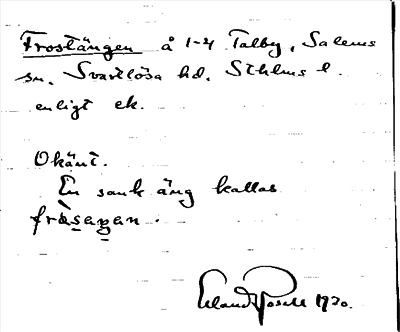 Frostängen å 1-4 Talby, Salems
sn. Svartlösa hd. Sthlms l.
enligt ek.
Okänt.
En sank äng kallas
Erland Rosell 1930.